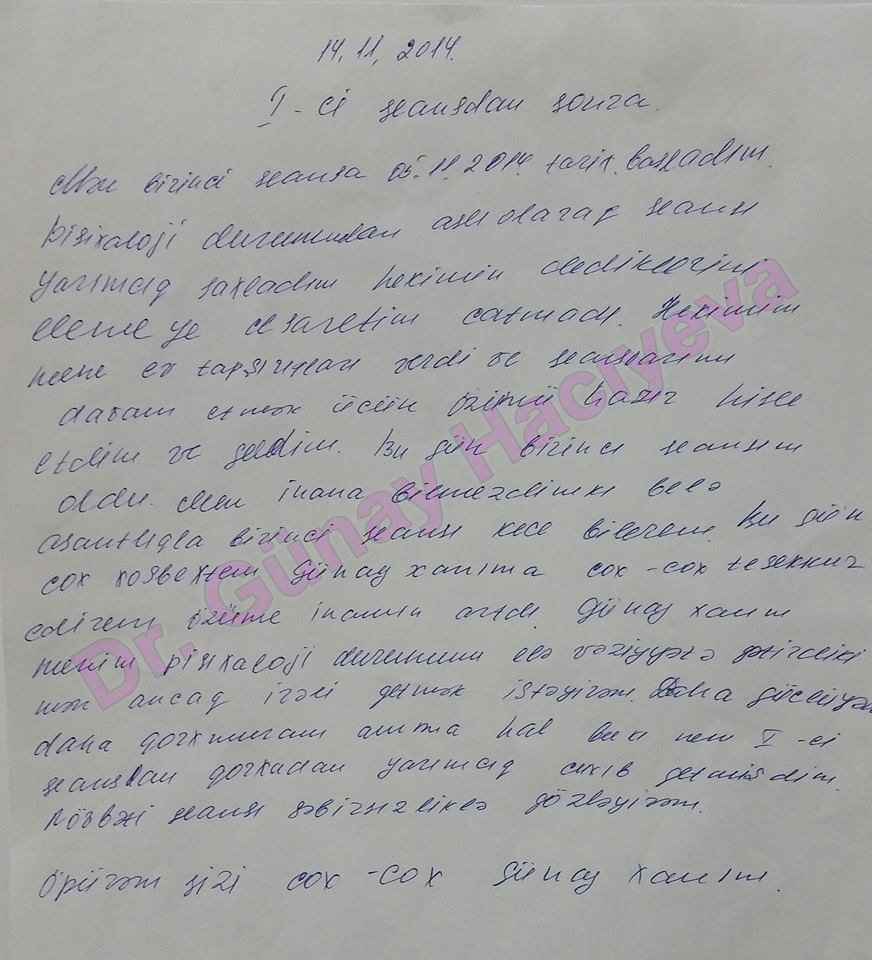 14.11.2014.
I-ci seansdan sonra.
Mən birinci seansa 05.11.2014. tarix. başladım.
pisixaloji durumundan aslı olaraq seansı
yarımçıq saxladım hekimin dediklərimi
elemeye cesaretim catmadı. Hekimim
mene ev tapşırıqları verdi ve seanslarımı
davam etmək üçün özümü hazır hiss
etdim ve geldim. Bu gün birinci seansım
oldu. Men inana bilmezdimki belə
asantlıqla birinci seansı kece bilerem. Bu gün
cox xosbextem Günay xanıma cox-cox tesekkur
edirem özüme inamım artdı. Günay xanım
menim pisixaloji durumumu elə vəziyyətə gətirdiki
mən ancaq irəli getmək istəyirəm. Daha güclüyəm
daha qorxmuram amma hal buki men I-ci
seansdan qorxudan yarımçıq cıxıb getmisdim.
Növbəti seansı səbirsizliklə gözləyirəm.
Öpürəm sizi cox-cox Günay xanım.
Dr. Günay Hacıyeva